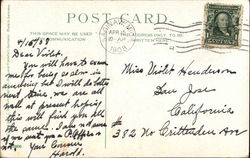 POST CARD
THIS SPACE MAY BE USED
FOR COMMUNICATION
THE ADDRESS ONLY TO BE
WRITTEN HERE
APR 12
1909
Dear Violet,
You will have to excuse
me for being so slow in
answering but I will do better
next time, we are all
well at present hoping
this will find you all
the same.
Your Cousin
Harold.
Miss Violet Henderson
San Jose
California
# 382 No Crittenden Ave